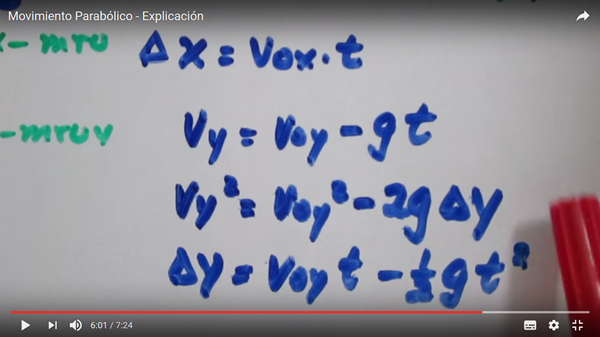 Movimiento Parabólico - Explicación
x- mru Δx = Vox · t
-mruv Vy = Voy - gt
Vy² = Voy² - 2gΔy
Δy = Voy t - ½ g t²
6:01 / 7:24